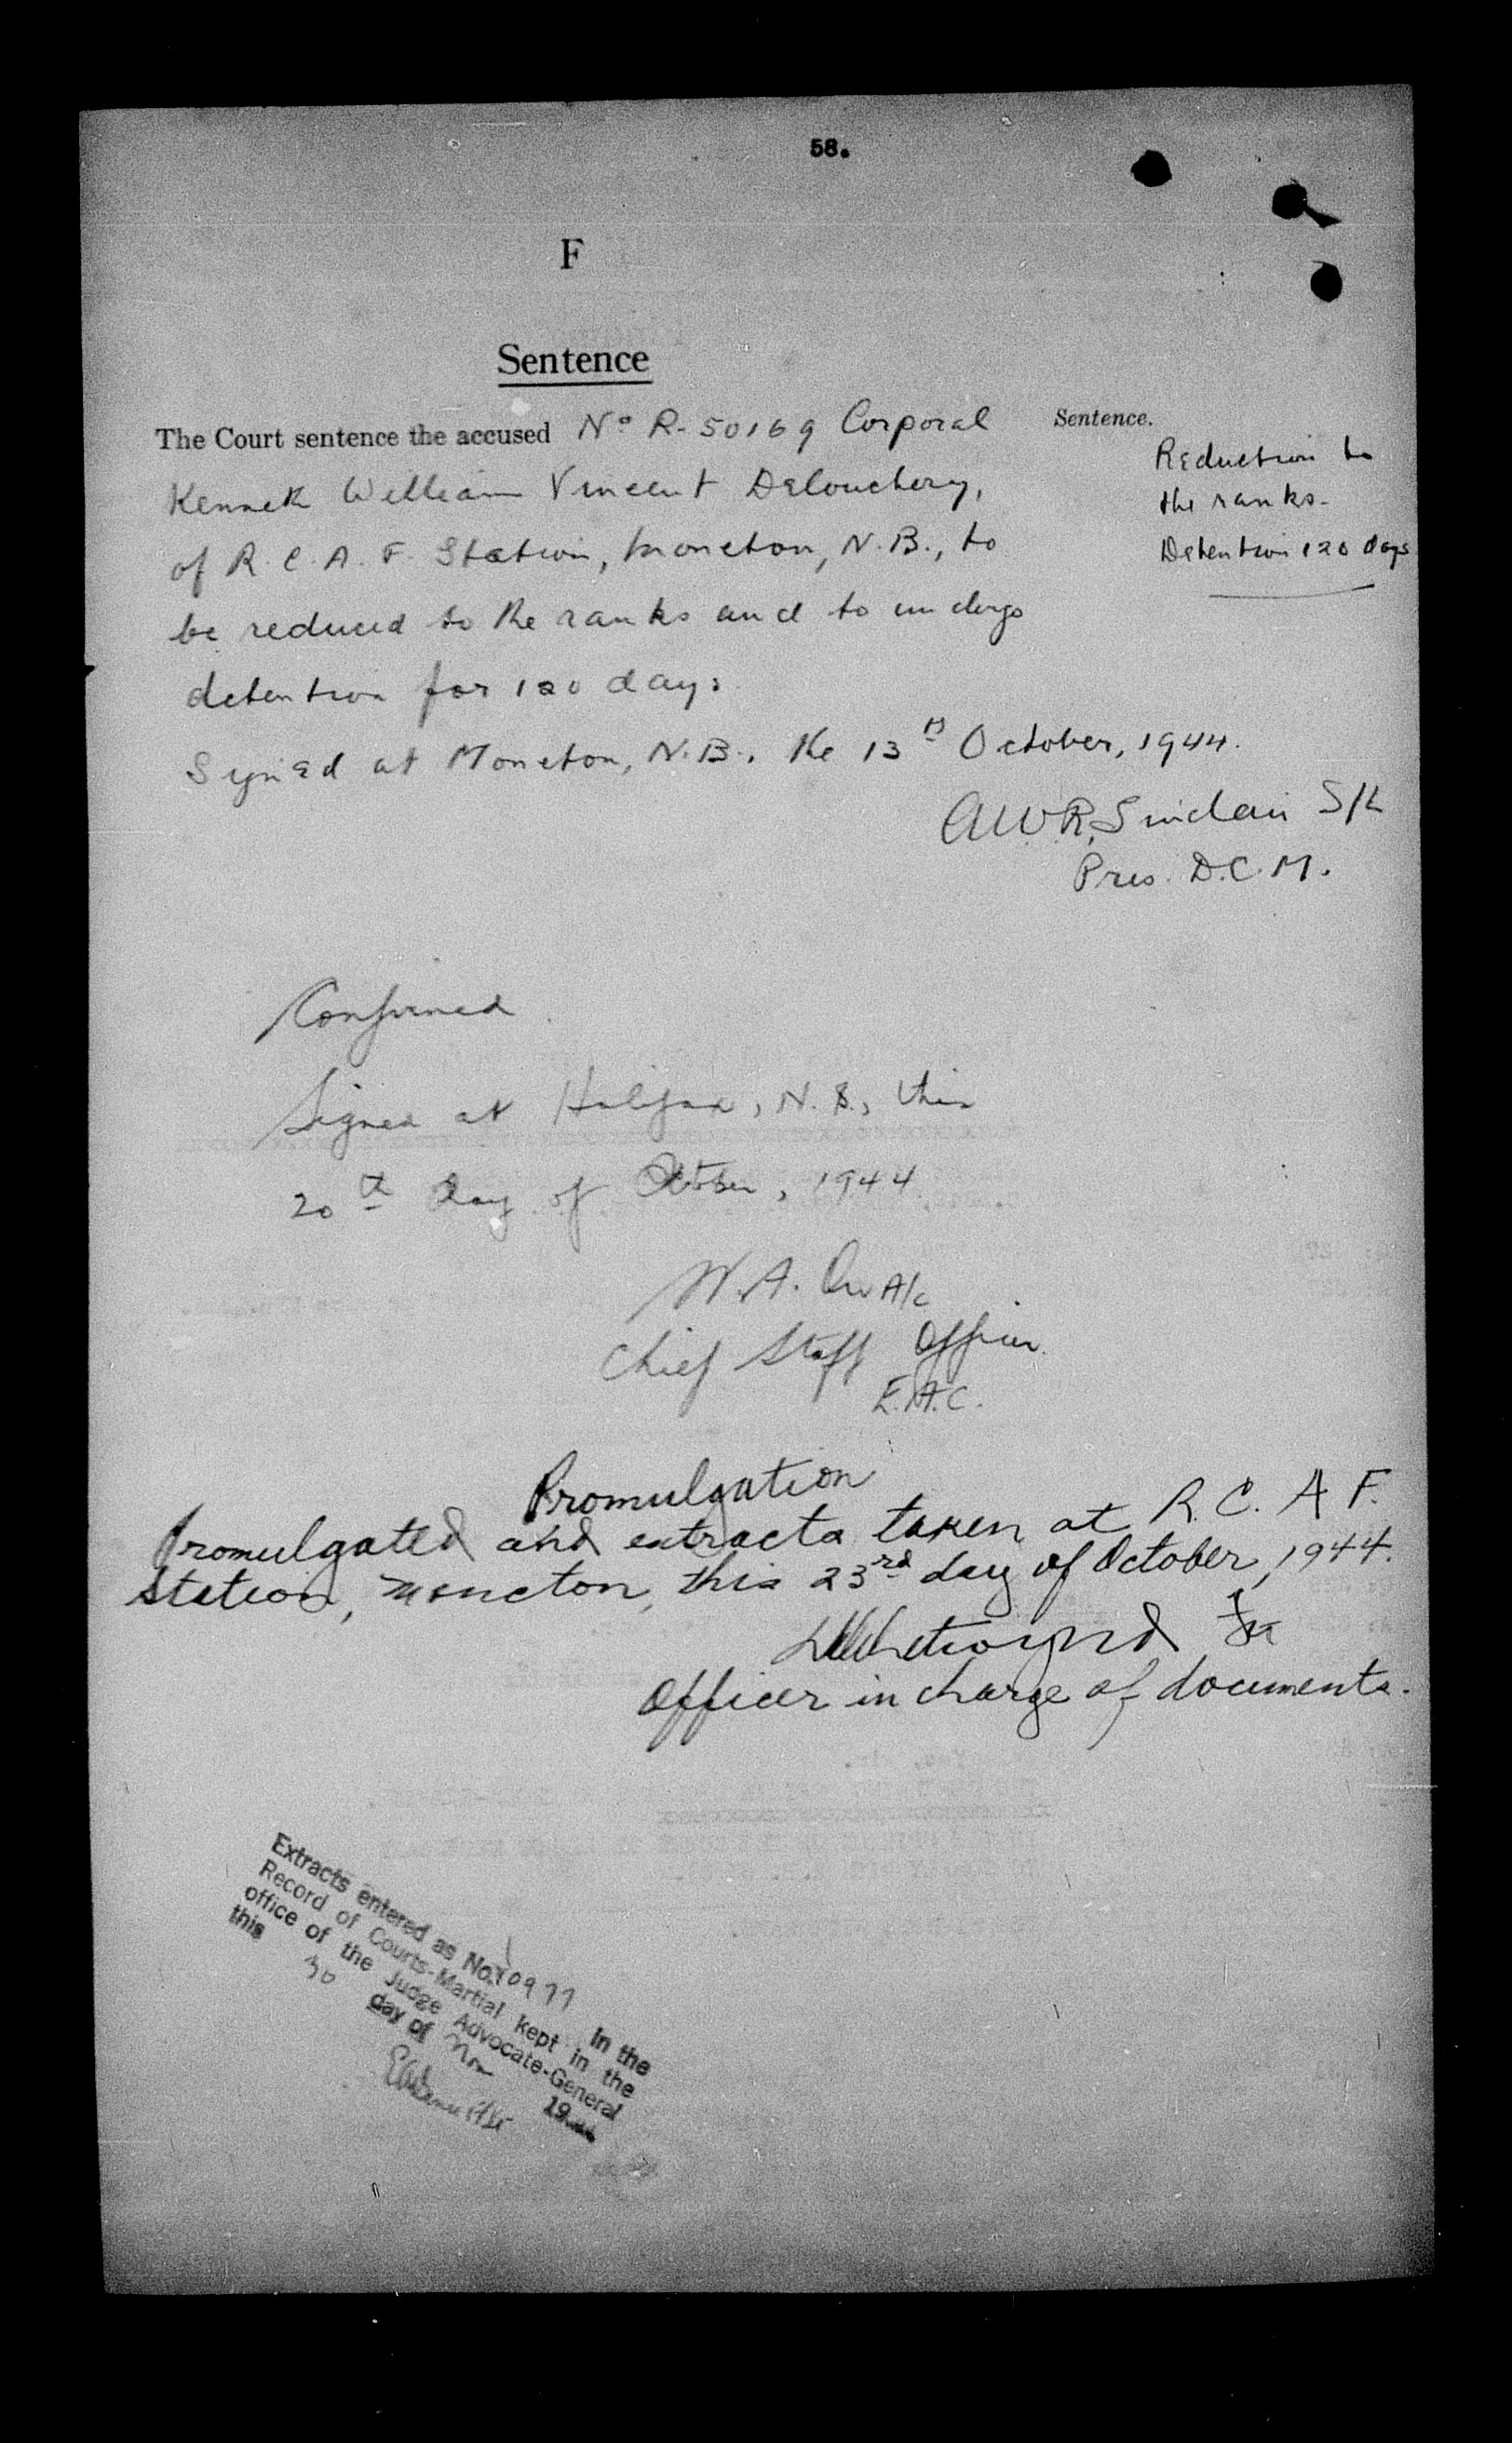 58.
F
Sentence
The Court sentence the accused No R-50169 Corporal
Kenneth William Vincent Delouchery,
of R.C.A.F. Station, Moncton, N.B., to
be reduced to the ranks and to undergo
detention for 120 days
Signed at Moncton, N.B., the 13th October, 1944.
A.W.R. Sinclair S/L
Pres. D.C.M.
Sentence.
Reduction to
the ranks.
Detention 120 days
Confirmed
Signed at Halifax, N.S., this
20th day of October, 1944
W.A. Orr A/C
Chief Staff Officer
E.A.C.
Promulgation
Promulgated and extracts taken at R.C.A.F.
Station, Moncton, this 23rd day of October, 1944.
Officer in charge of documents.
Extracts entered as No. 10977 In the
Record of Courts-Martial kept in the
office of the Judge Advocate-General
this 30 day of Nov 1944